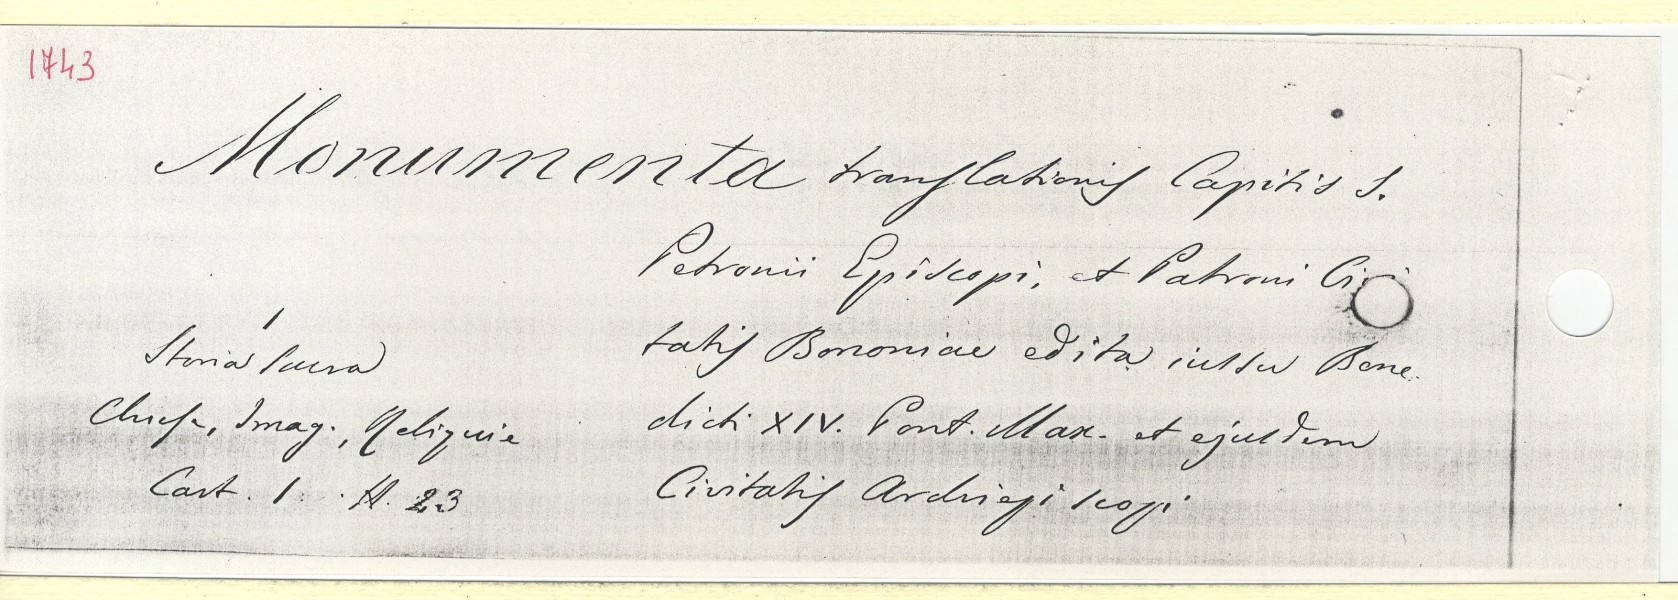 1743
Monumenta translationis Capitis S.
Petronii Episcopi, et Patroni Civi
tatis Bononiae edita iussu Bene
dicti XIV. Pont. Max. et ejusdem
Civitatis Archiepiscopi
1
Storia sacra
Chiese, Imag., Reliquie
Cart. 1. N. 23